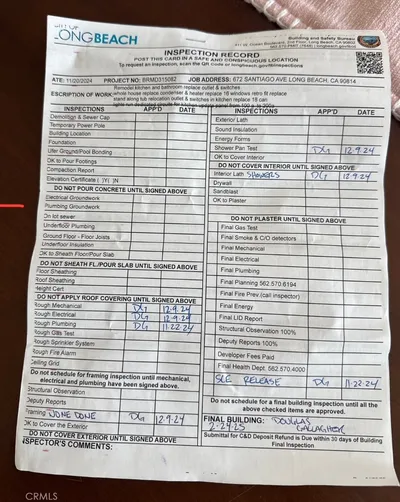 CITY OF
LONGBEACH
Building and Safety Bureau
411 W. Ocean Boulevard, 2nd Floor, Long Beach, CA 90802
INSPECTION RECORD
POST THIS CARD IN A SAFE AND CONSPICUOUS LOCATION
To request an inspection, scan the QR Code or longbeach.gov/lbinspections
ATE: 11/20/2024 PROJECT NO: BRMD315082 JOB ADDRESS: 672 SANTIAGO AVE LONG BEACH, CA 90814
Remodel kitchen and bathroom replace outlet & switches
ESCRIPTION OF WORK: whole house replace condenser & heater replace 16 windows retro fit replace
stand along tub relocation outlet & switches in kitchen replace 18 can
INSPECTIONS APP'D DATE
Demolition & Sewer Cap
Temporary Power Pole
Building Location
Foundation
Ufer Ground/Pool Bonding
OK to Pour Footings
Compaction Report
Elevation Certificate ( )Y( )N
DO NOT POUR CONCRETE UNTIL SIGNED ABOVE
Electrical Groundwork
Plumbing Groundwork
On lot sewer
Underfloor Plumbing
Ground Floor - Floor Joists
Underfloor Insulation
OK to Sheath Floor/Pour Slab
DO NOT SHEATH FL./POUR SLAB UNTIL SIGNED ABOVE
Floor Sheathing
Roof Sheathing
Height Cert
DO NOT APPLY ROOF COVERING UNTIL SIGNED ABOVE
Rough Mechanical DG 12-9-24
Rough Electrical DG 12-9-24
Rough Plumbing DG 11-22-24
Rough Gas Test
Rough Sprinkler System
Rough Fire Alarm
Ceiling Grid
Do not schedule for framing inspection until mechanical,
electrical and plumbing have been signed above.
Structural Observation
Deputy Reports
Framing NONE DONE DG 12-9-24
OK to Cover the Exterior
DO NOT COVER EXTERIOR UNTIL SIGNED ABOVE
NSPECTOR'S COMMENTS:
INSPECTIONS APP'D DATE
Exterior Lath
Sound Insulation
Energy Forms
Shower Pan Test DG 12-9-24
OK to Cover Interior
DO NOT COVER INTERIOR UNTIL SIGNED ABOVE
Interior Lath SHOWERS DG 12-9-24
Drywall
Sandblast
OK to Plaster
DO NOT PLASTER UNTIL SIGNED ABOVE
Final Gas Test
Final Smoke & C/O detectors
Final Mechanical
Final Electrical
Final Plumbing
Final Planning 562.570.6194
Final Fire Prev (call inspector)
Final Energy
Final LID Report
Structural Observation 100%
Deputy Reports 100%
Developer Fees Paid
Final Health Dept. 562.570.4000
SCE RELEASE DG 11-22-24
Do not schedule for a final building inspection until all the
above checked items are approved.
FINAL BUILDING: DOUGLAS
2-24-25 GALLAGHER
Submittal for C&D Deposit Refund is Due within 30 days of Building
Final Inspection
CRMLS